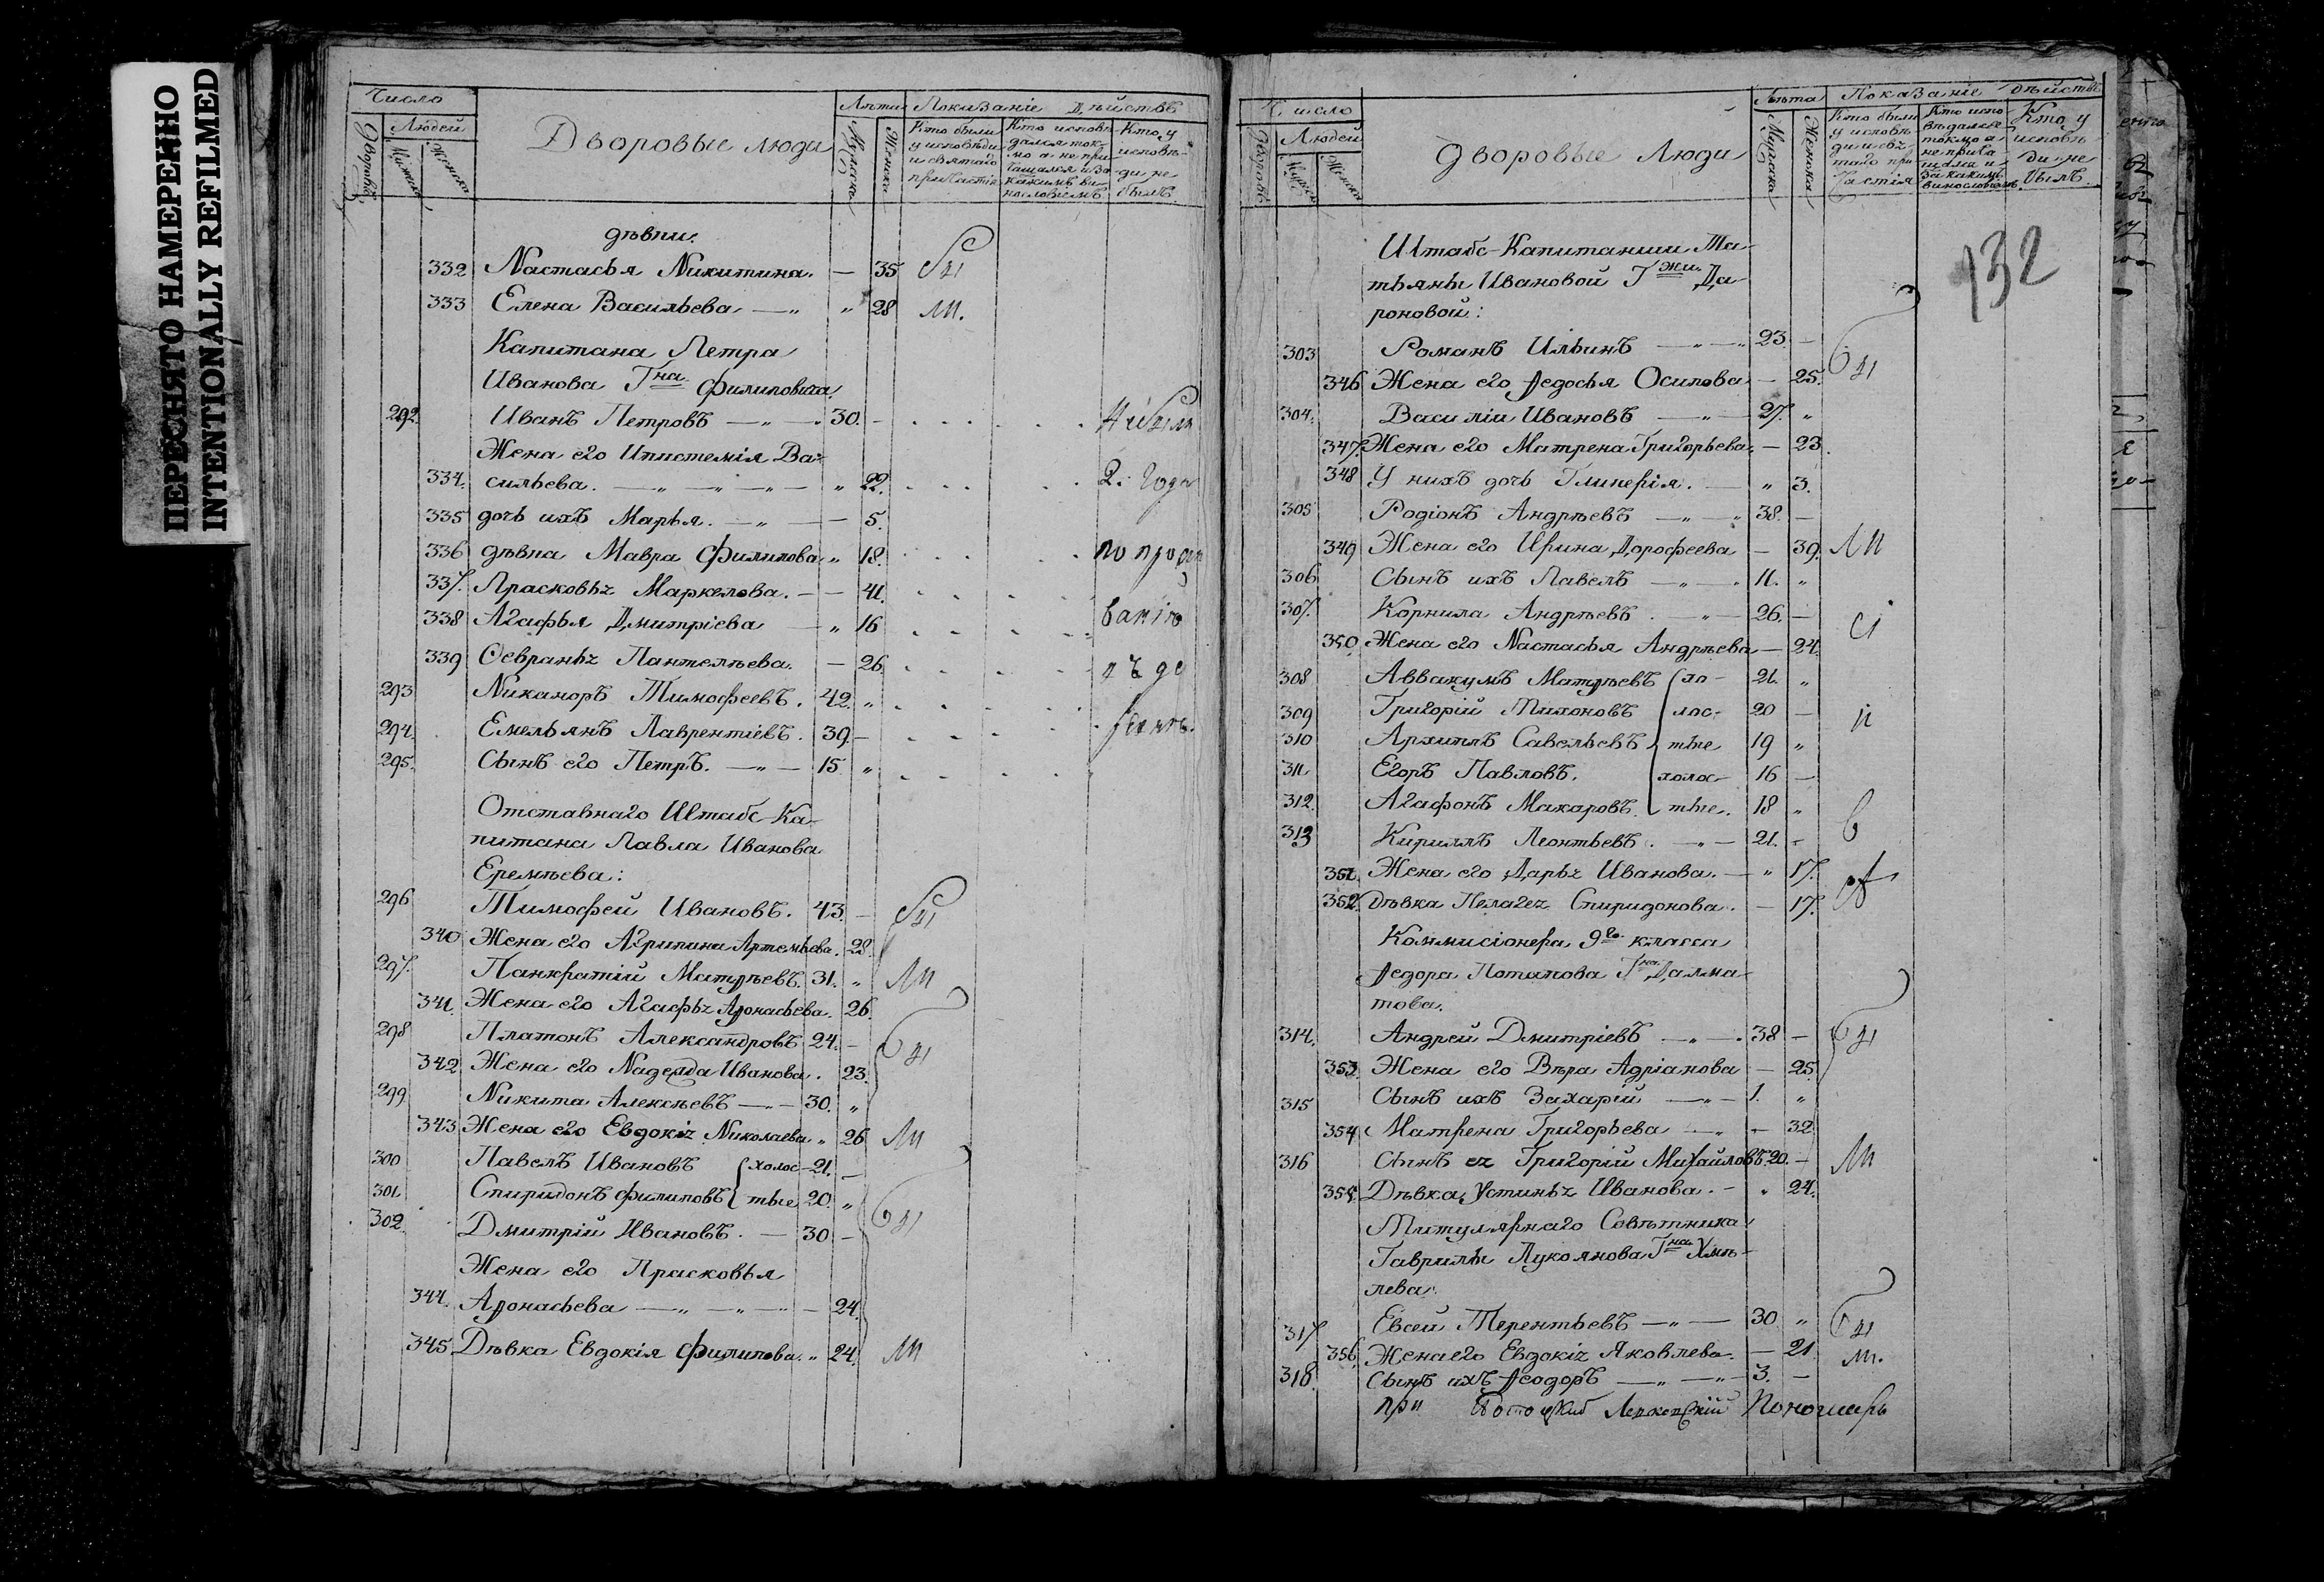 ПЕРЕСНЯТО НАМЕРЕННО
INTENTIONALLY REFILMED
Число Дворовые люди Лѣта Показаніе Дѣйствъ
Людей
Мужска Женска Мужска Женска
Кто были у исповѣди и святаго причастія
Кто исповѣдался токмо а не причащался и за какимъ винословіемъ
Кто у исповѣди не былъ
дѣвки.
332 Настасья Никитина. — 35
333 Елена Васильева — „ „ 28
Капитана Петра
Иванова Гна Филиповича.
292. Иванъ Петровъ — „ — 30. —
Жена его Епистемія Ва-
334. сильева. — „ — „ — „ — „ 22. 2. года
335 дочь ихъ Марья. — „ — — 5.
336 дѣвка Мавра Филипова „ 18.
337. Прасковья Маркелова. — — 41.
338 Агафья Дмитріева — „ 16
339 Февранья Пантелѣева. — 26.
293 Никаноръ Тимофеевъ. 42. „
294. Емельянъ Лаврентіевъ. 39. —
295. Сынъ его Петръ. — „ — 15 „
Отставнаго Штабс-Ка-
питана Павла Иванова
Еремѣева:
296 Тимофей Ивановъ. 43. —
340 Жена его Агрипина Артемьева. 28.
297. Панкратій Матѳѣевъ. 31. „
341. Жена его Агафья Аѳонасьева. 26.
298 Платонъ Александровъ 24. —
342 Жена его Надежда Иванова. 23.
299 Никита Алексѣевъ — „ — 30. „
343 Жена его Евдокія Николаева „ 26
300 Павелъ Ивановъ холос- 21. —
301 Спиридонъ Филиповъ тые 20. „
302. Дмитрій Ивановъ. — 30 —
Жена его Прасковья
344. Аѳонасьева — „ — „ — „ — 24.
345 Дѣвка Евдокія Филипова. „ 24.
Число Дворовые Люди Лѣта Показаніе дѣйствъ
Людей
Мужска Женска Мужска Женска
Кто были у исповѣди и святаго причастія
Кто исповѣдался токмо а не причащался и за какимъ винословіемъ
Кто у исповѣди не былъ
132
Штабс-Капитанши Та-
тьяны Ивановой Гжи Да-
роновой:
303 Романъ Ильинъ — „ — „ 23. —
346 Жена его Ѳедосья Осипова — 25.
304. Василій Ивановъ — „ — 27. „
347. Жена его Матрена Григорьева. — 23.
348 У нихъ дочь Гликерія. — „ 3.
305 Родіонъ Андрѣевъ — „ — „ 38. —
349 Жена его Ирина Дорофеева — 39.
306 Сынъ ихъ Павелъ — „ — 11. „
307. Корнила Андрѣевъ. — „ — 26. —
350. Жена его Настасья Андрѣева — 24.
308 Аввакумъ Матѳѣевъ хо- 21. „
309 Григорій Тихоновъ лос- 20 —
310 Архипъ Савельевъ тые 19 „
311 Егоръ Павловъ. холос- 16 —
312. Агафонъ Макаровъ. тые. 18 „
313 Кириллъ Леонтьевъ. — „ — 21. —
351. Жена его Дарья Иванова. — „ 17.
352. Дѣвка Пелагея Спиридонова. — 17.
Коммисіонера 9го класса
Ѳедора Потапова Гна Далма-
това.
314. Андрей Дмитріевъ — „ — 38 —
353. Жена его Вѣра Адріанова — 25.
315 Сынъ ихъ Захарій — „ — 1. „
354 Матрена Григорьева — „ — 32.
316 Сынъ ея Григорій Михайловъ. 20. —
355. Дѣвка Устинья Иванова. — „ 24.
Титулярнаго Совѣтника
Гаврилы Лукоянова Гна Хмѣ-
лева.
317 Евсей Терентьевъ — „ — 30 „
356. Жена его Евдокія Яковлева. — 21
318. Сынъ ихъ Ѳеодоръ — „ — „ — 3. —
Пономарь